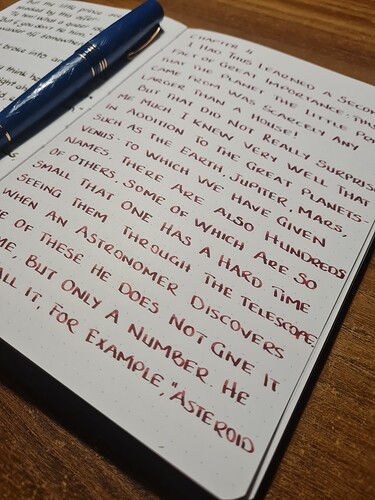 But the little prince
broke into
think
CHAPTER 4
I HAD THUS LEARNED A SECON
FACT OF GREAT IMPORTANCE: THIS
THAT THE PLANET THE LITTLE
CAME FROM WAS SCARCELY ANY
LARGER THAN A HOUSE!
BUT THAT DID NOT REALLY SURPRIS
ME MUCH I KNEW VERY WELL THAT
IN ADDITION TO THE GREAT PLANETS-
SUCH AS THE EARTH, JUPITER, MARS,
VENUS- TO WHICH WE HAVE GIVEN
NAMES, THERE ARE ALSO HUNDREDS
OF OTHERS. SOME OF WHICH ARE SO
SMALL THAT ONE HAS A HARD TIME
SEEING THEM THROUGH THE TELESCOPE.
WHEN AN ASTRONOMER DISCOVERS
E OF THESE HE DOES NOT GIVE IT
ME, BUT ONLY A NUMBER. HE
ALL IT, FOR EXAMPLE, "ASTEROID